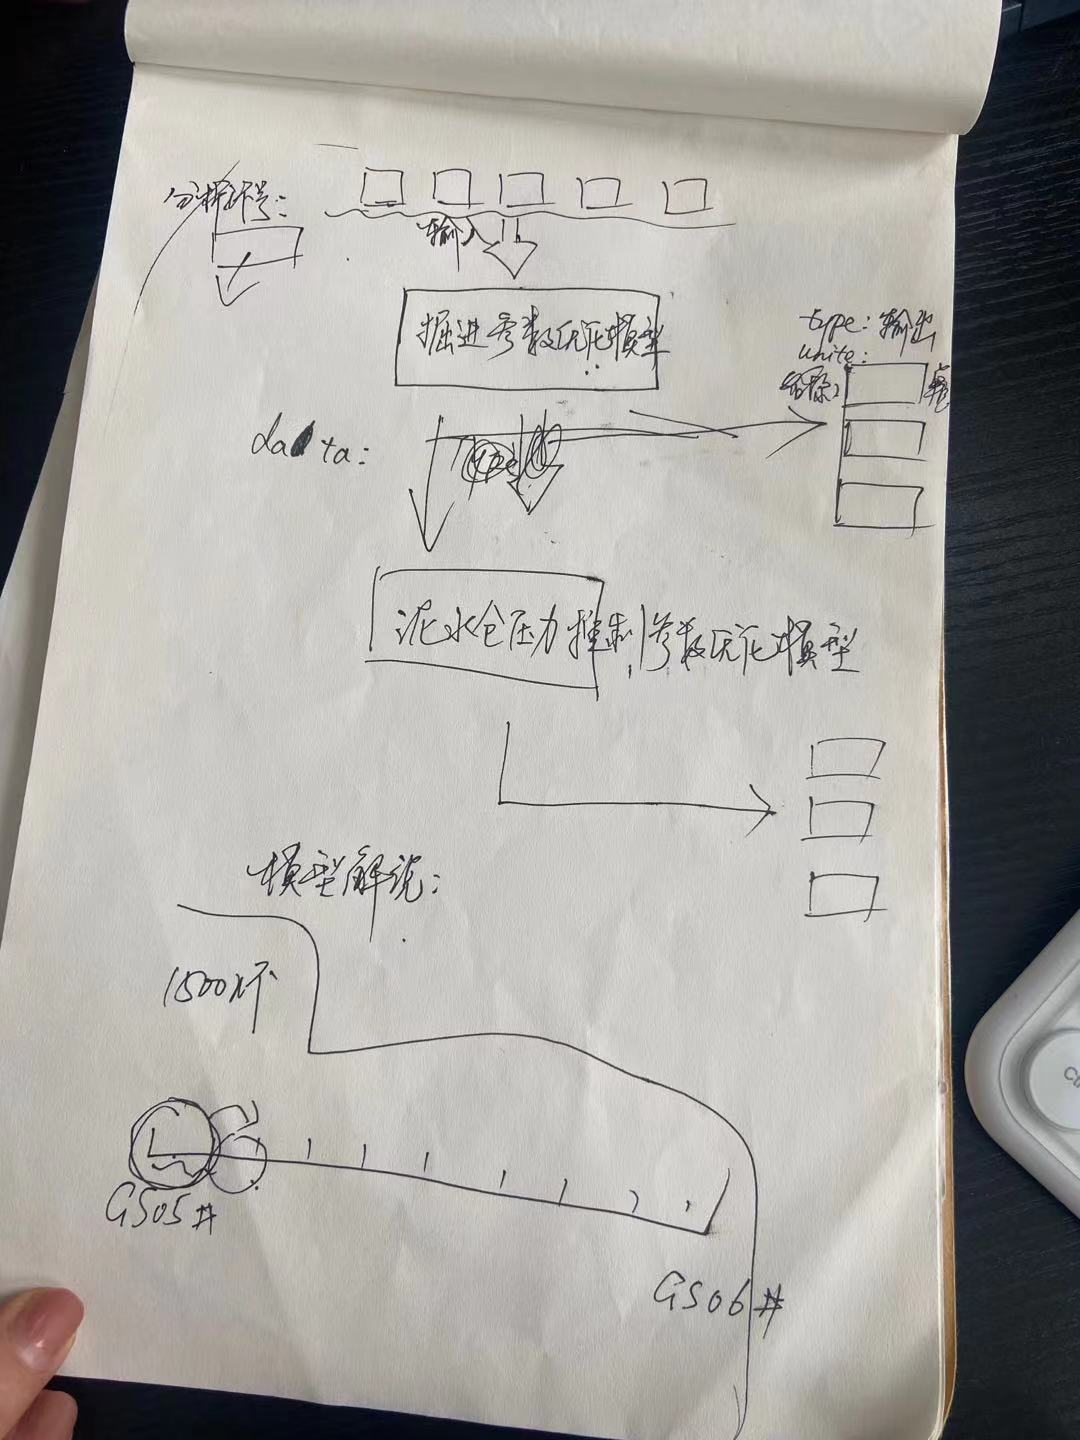 分析环号：
输入
掘进参数优化模型
type：输出
unite：
data：
type
泥水仓压力控制参数优化模型
模型解说：
1500环
GS05#
GS06#